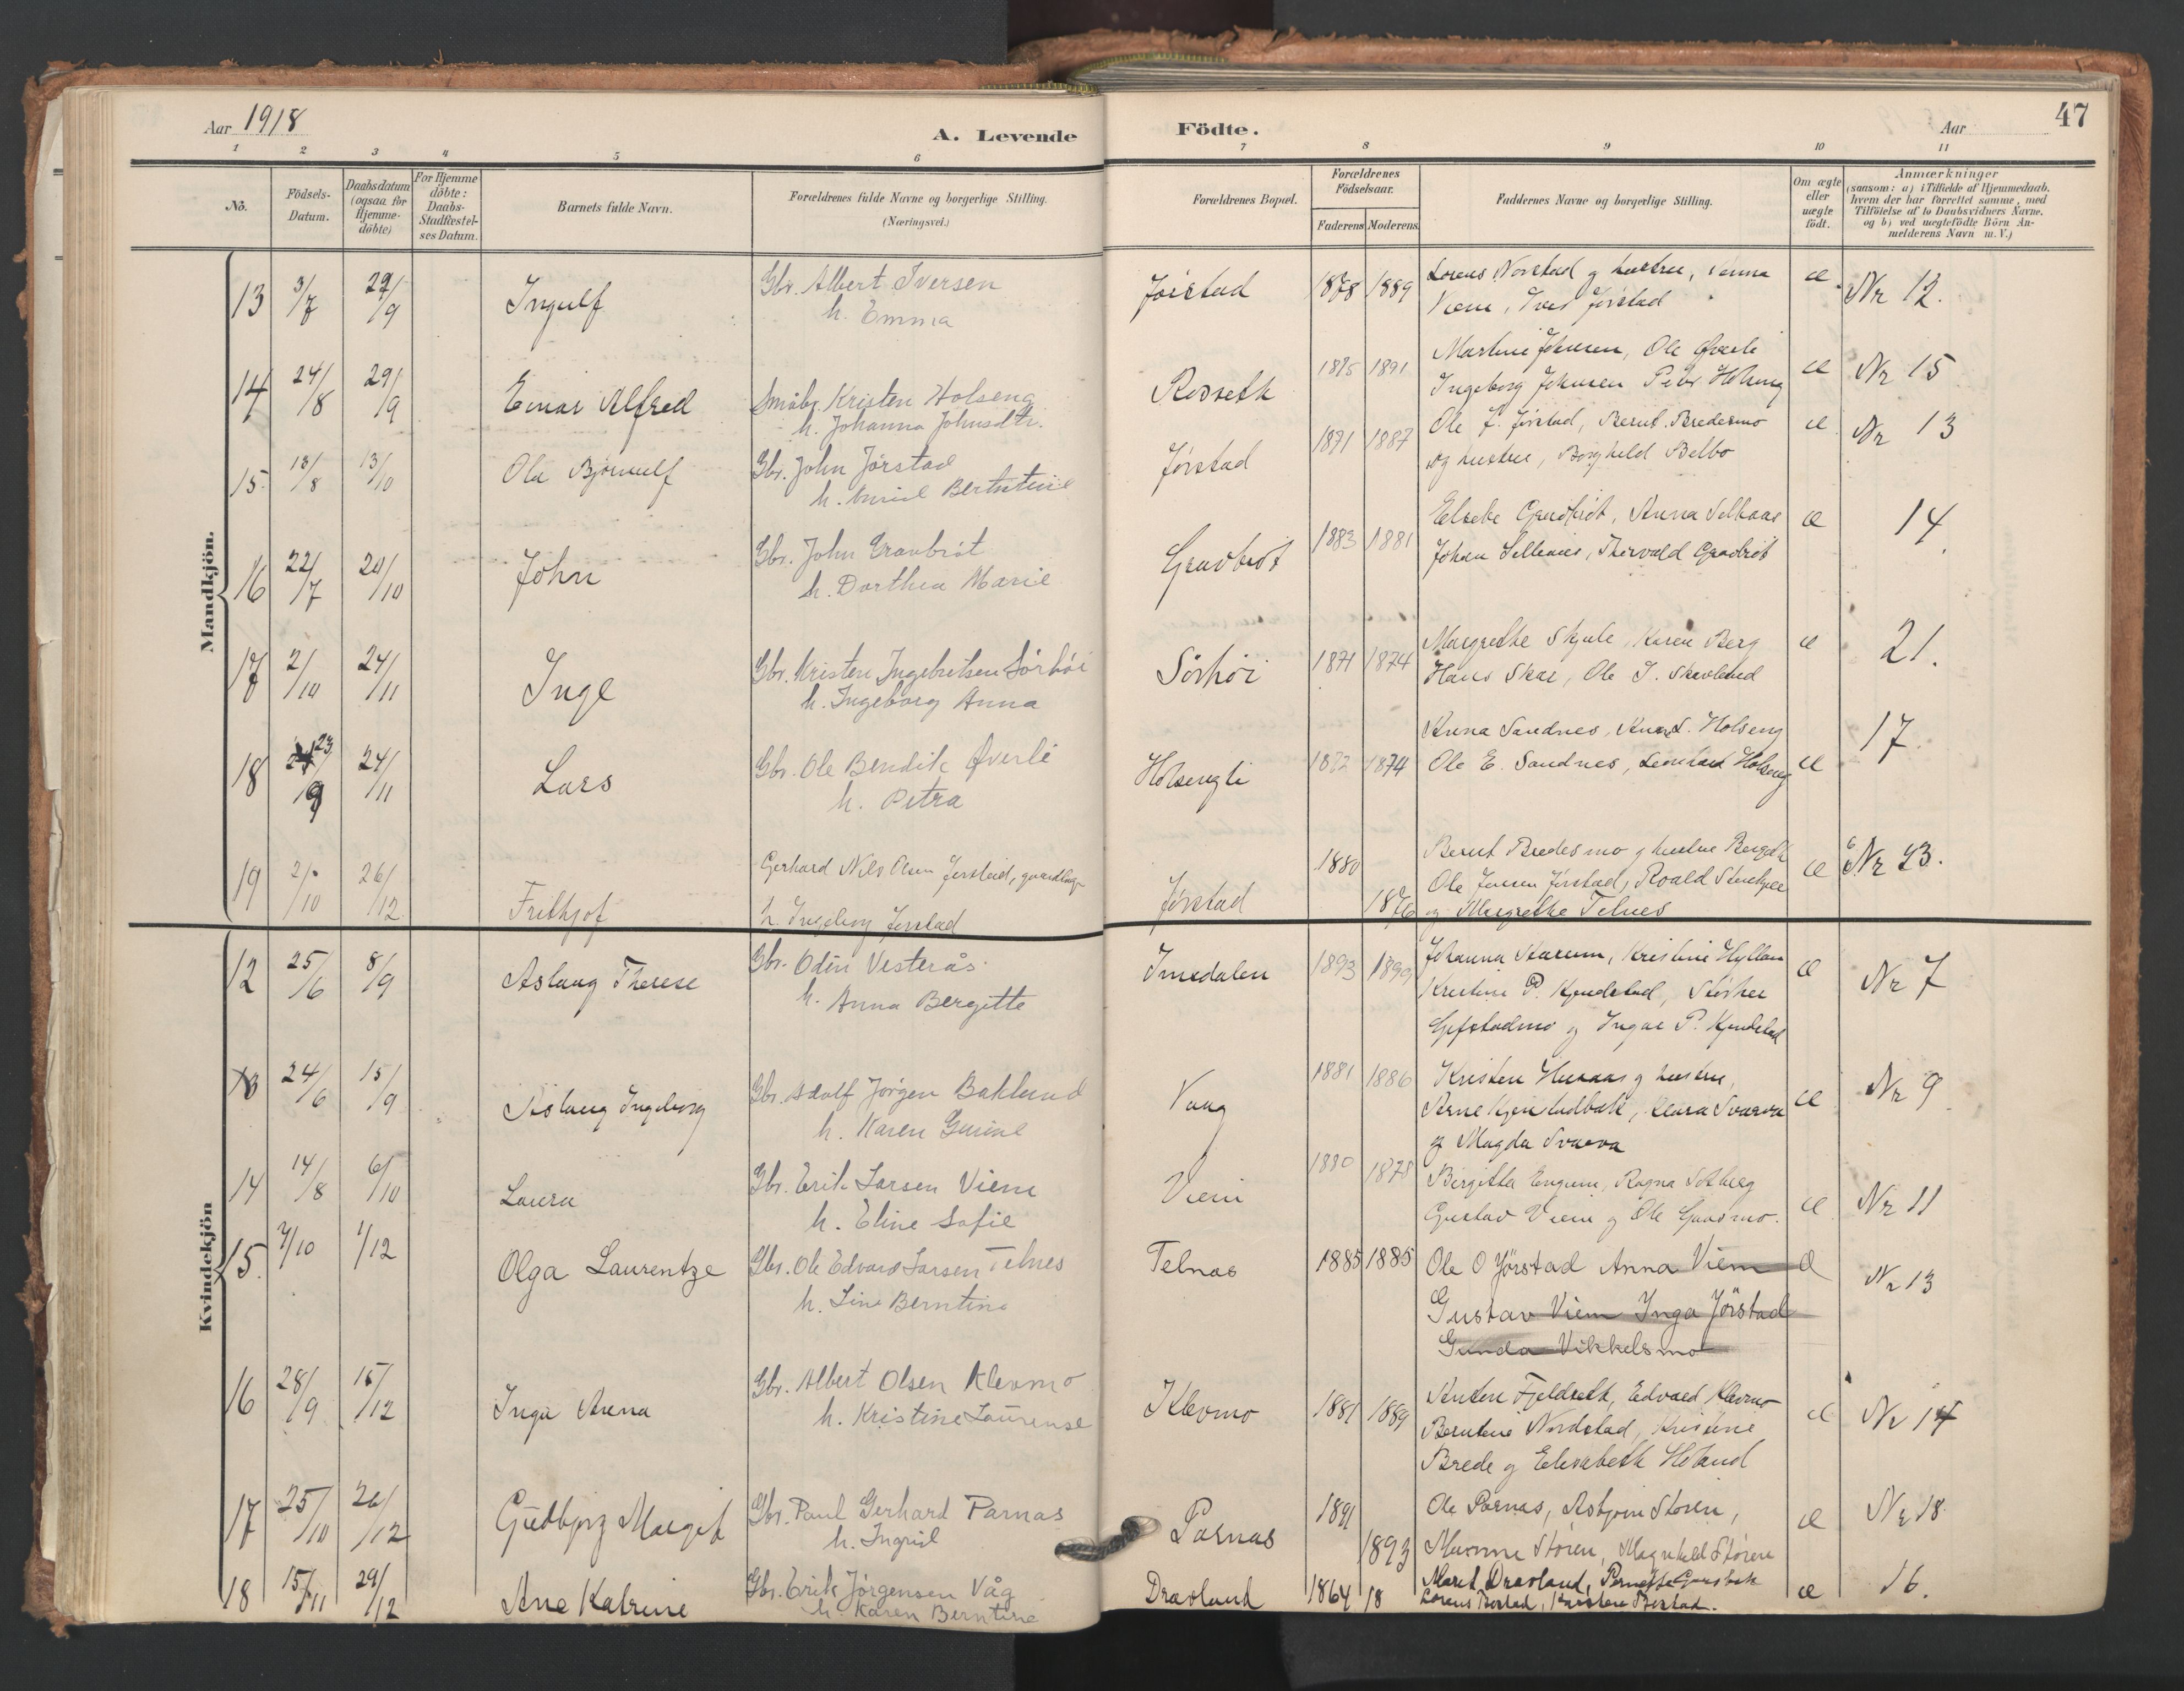 Aar 1918
A. Levende
Födte.
Aar
47
1 2 3 4 5 6 7 8 9 10 11
No.
Födsels-
Datum.
Daabsdatum
(ogsaa for
Hjemme-
döbte)
For Hjemme
döbte:
Daabs-
Stadfæstel-
ses Datum.
Barnets fulde Navn.
Forældrenes fulde Navne og borgerlige Stilling.
(Næringsvei.)
Forældrenes Bopæl.
Forældrenes
Födselsaar.
Faderens Moderens
Faddernes Navne og borgerlige Stilling.
Om ægte
eller
uægte
födt.
Anmærkninger
(saasom: a) i Tilfælde af Hjemmedaab,
hvem der har forrettet samme, med
Tilföielse af to Daabsvidners Navne,
og b) ved uægtefödte Börn An-
melderens Navn m. V.)
Mandkjön.
13 3/7 29/9 Ingulf
Gbr. Albert Iversen
h. Emma
Jørstad 1878 1889
Lorens Norstad og hustru, Anna
Viem, Ivar Jørstad
æ. Nr 12.
14 24/8 29/9 Einar Alfred
Småbr. Kristen Holseng
h. Johanna Johnsdtr.
Rosseth 1891
Martin Johnsen, Ole Øverli
Ingeborg Johnsen Peter Holseng
æ Nr 15
15. 18/8 13/10 Ola Bjørnulf
Gbr. John Jörstad
h. Berntine
Jørstad 1871 1887
Ole J. Jørstad, Bernt Bredesmo
og hustru, Borghild Belbo
æ. Nr 13
16 22/7 20/10 John
Gbr. John Gravbröt
h. Dorthea Marie
Gravbrøt 1883 1881
Gravbrøt, Anna Selliaas
Johan Selliaas, Thorvald Gravbrøt
æ 14
17 2/10 24/11 Inge
Gbr. Kristen Ingebretsen Sörhöi
h. Ingeborg Anna
Sörhöi 1871 1874
Margrethe Skjule, Karen Berg
Hans Skar, Ole J. Skavland
æ 21.
18 23/9 24/11 Lars
Gbr. Ole Bendik Øverli
h. Petra
Holsengli 1874
Anna Sandnes, Holseng
Ole E. Sandnes, Leonhard Holseng
æ 17.
19 2/10 26/12 Frithjof
Gerhard Nils Olsen Jørstad, gaardbr.
h. Ingeborg Jørstad
Jørstad 1880 1876
Bernt Bredesmo og hustru
Ole Jensen Jørstad, Roald Steinkjer
og Margrethe Telnes
æ Nr 13.
Kvindekjön
12 25/6 8/9 Aslaug Therese
Gbr. Odin Vesterås
h. Anna Bergitte
Imsdalen 1893 1899
Johanna Aarum, Kristine Hyllan
Kristine P. Kjendstad,
og Ingar P. Kjendstad
æ Nr 7
13 24/6 15/9 Aslaug Ingeborg
Gbr. Adolf Jörgen Baklund
h. Karen Gurine
Vaag 1881 1886
Kristen og hustru,
Arne Kjenstadbakk, Klara Svarva
og Magda Svarva
æ Nr 9
14 14/8 6/10 Laura
Gbr. Erik Larsen Viem
h. Eline Sofie
Viem 1880 1878
Birgitta Engum, Ragna Solberg
Gustav Viem og Ole Gaasmo.
æ Nr 11
15. 4/10 1/12 Olga Laurentze
Gbr. Ole Edvard Larsen Telnes
h. Lina Berntine
Telnas 1885 1885
Ole O Jörstad Anna Viem
Gustav Viem Inga Jörstad
Gunda Vikkelsmo
Æ Nr 13
16 28/9 15/12 Inga Anna
Gbr. Albert Olsen Klevmo
h. Kristine Laurense
Klevmo 1881 1889
Anton Fjeldseth, Edvard Klevmo
Berntine Nordstad, Kristine
Brede og Elisabeth Heland
æ Nr 14
17 25/10 26/12 Gudbjörg Margit
Gbr. Paul Gerhard Parnas
h. Ingrid
Parnas 1891 1893
Ole Parnas, Asbjørn Støren,
Støren, Magnhild Støren
æ Nr 18.
18 15/11 29/12 Ane Katrine
Gbr. Erik Jörgensen Våg
h. Karen Berntine
Dravland 1864 18
Marit Dravland,
æ 16.